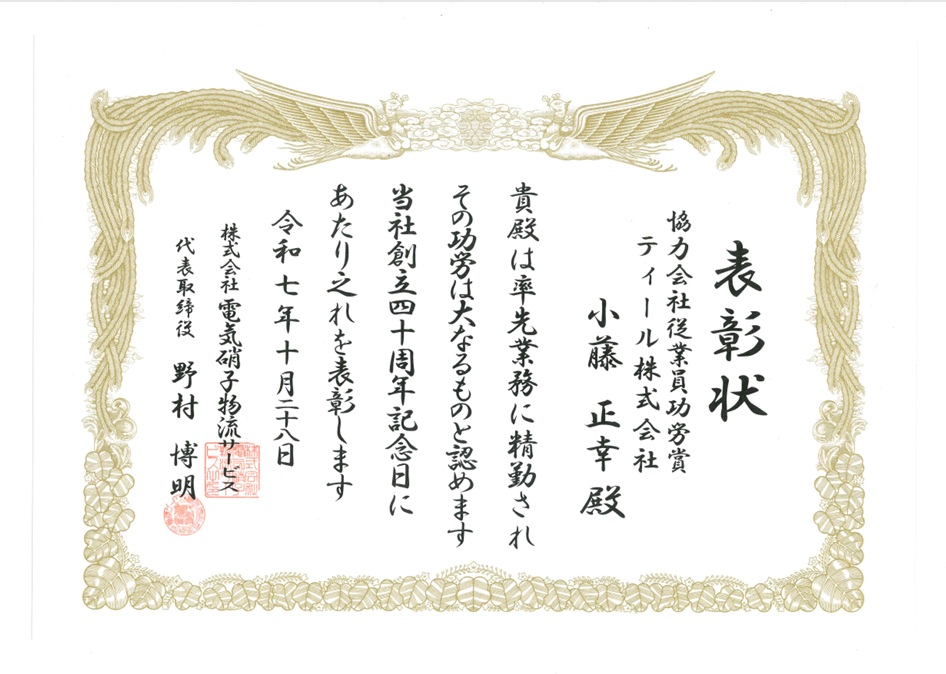 表彰状
協力会社従業員功労賞
ティール株式会社
小藤 正幸 殿
貴殿は率先業務に精勤され
その功労は大なるものと認めます
当社創立四十周年記念日に
あたり之れを表彰します
令和七年十月二十八日
株式会社 電気硝子物流サービス
代表取締役 野村 博明